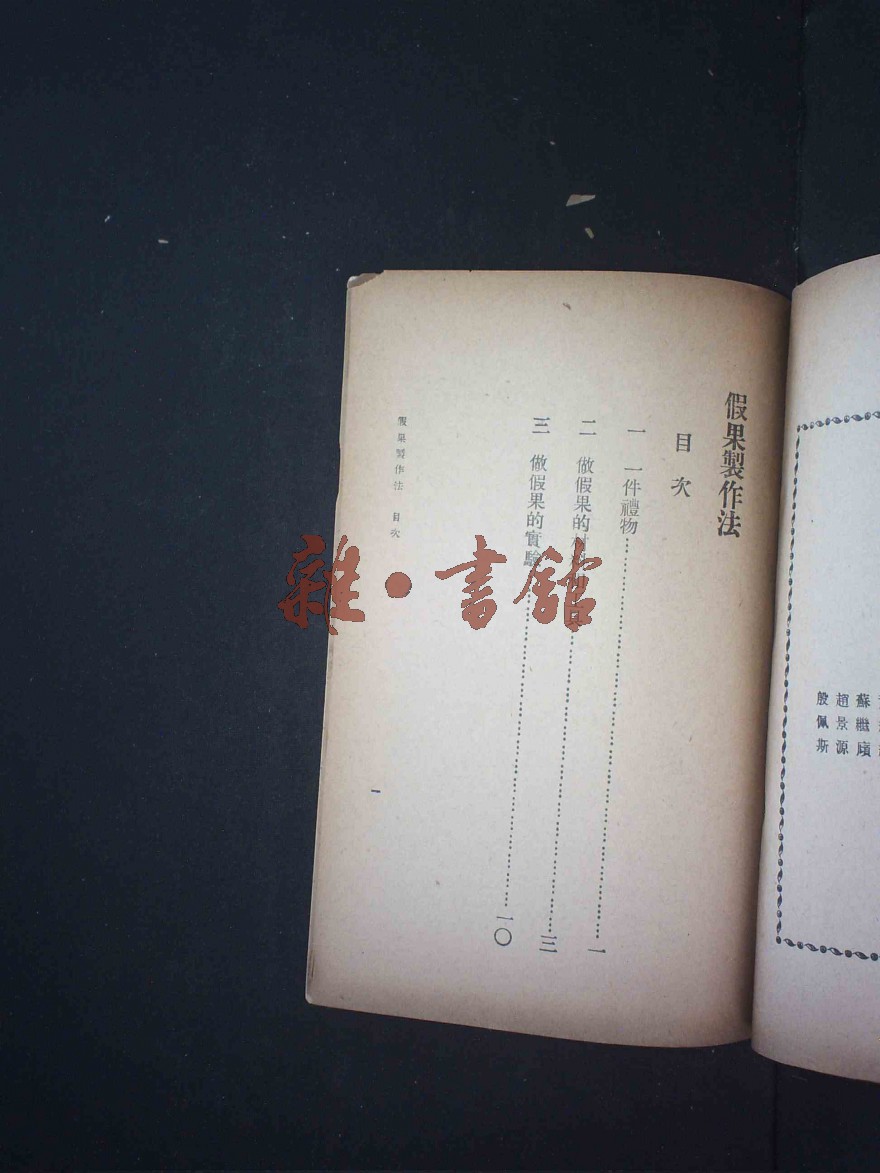 假果製作法
目次
一 一件禮物……一
二 做假果的……三
三 做假果的實驗……一〇
假果製作法 目次
一
雜·書館
蘇繼廎
趙景源
殷佩斯